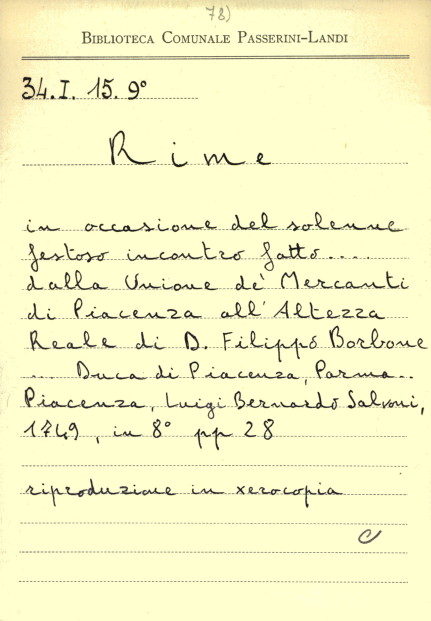 78)
BIBLIOTECA COMUNALE PASSERINI-LANDI
34.I. 15. 9°
Rime
in occasione del solenne
festoso incontro fatto....
dalla Unione de' Mercanti
di Piacenza all'Altezza
Reale di D. Filippo Borbone
.... Duca di Piacenza, Parma...
Piacenza, Luigi Bernardo Salvoni,
1749, in 8° pp 28
riproduzione in xerocopia
C